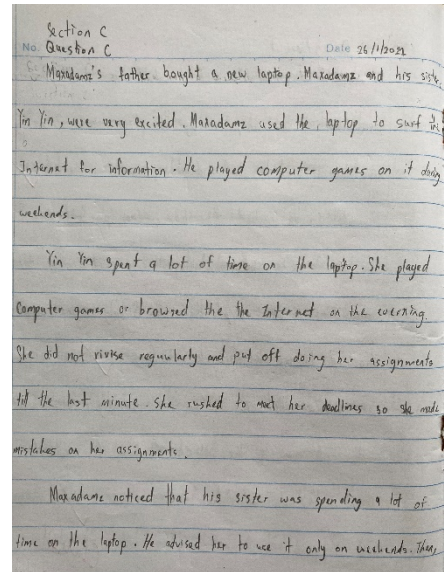 Section C
No. Question C Date 26/1/2022
Maxadamz's father bought a new laptop. Maxadamz and his sister
Yin Yin, were very excited. Maxadamz used the laptop to surf
Internet for information. He played computer games on it during
weekends.
Yin Yin spent a lot of time on the laptop. She played
computer games or browsed the the Internet on the everning.
She did not rivise reguularly and put off doing her assignments
till the last minute. She rushed to meet her deadlines so she made
mistakes on her assignments.
Maxadamz noticed that his sister was spending a lot of
time on the laptop. He advised her to use it only on weekends. Then,